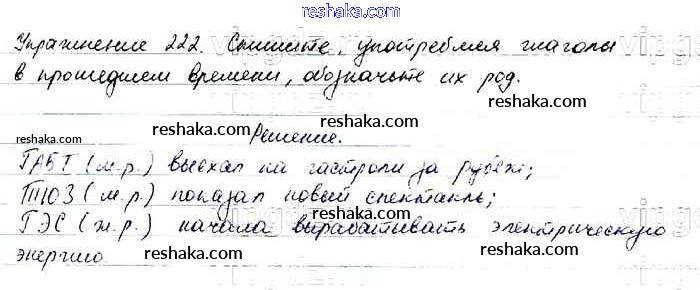 reshaka.com
Упражнение 222. Спишите, употребляя глаголы
в прошедшем времени, обозначьте их род.
reshaka.com reshaka.com
reshaka.com Решение. reshaka.com
ГАБТ (м.р.) выехал на гастроли за рубеж;
reshaka.com
ТЮЗ (м.р.) показал новый спектакль;
reshaka.com reshaka.com
ГЭС (ж.р.) начала вырабатывать электрическую
энергию reshaka.com
reshaka.com reshaka.com